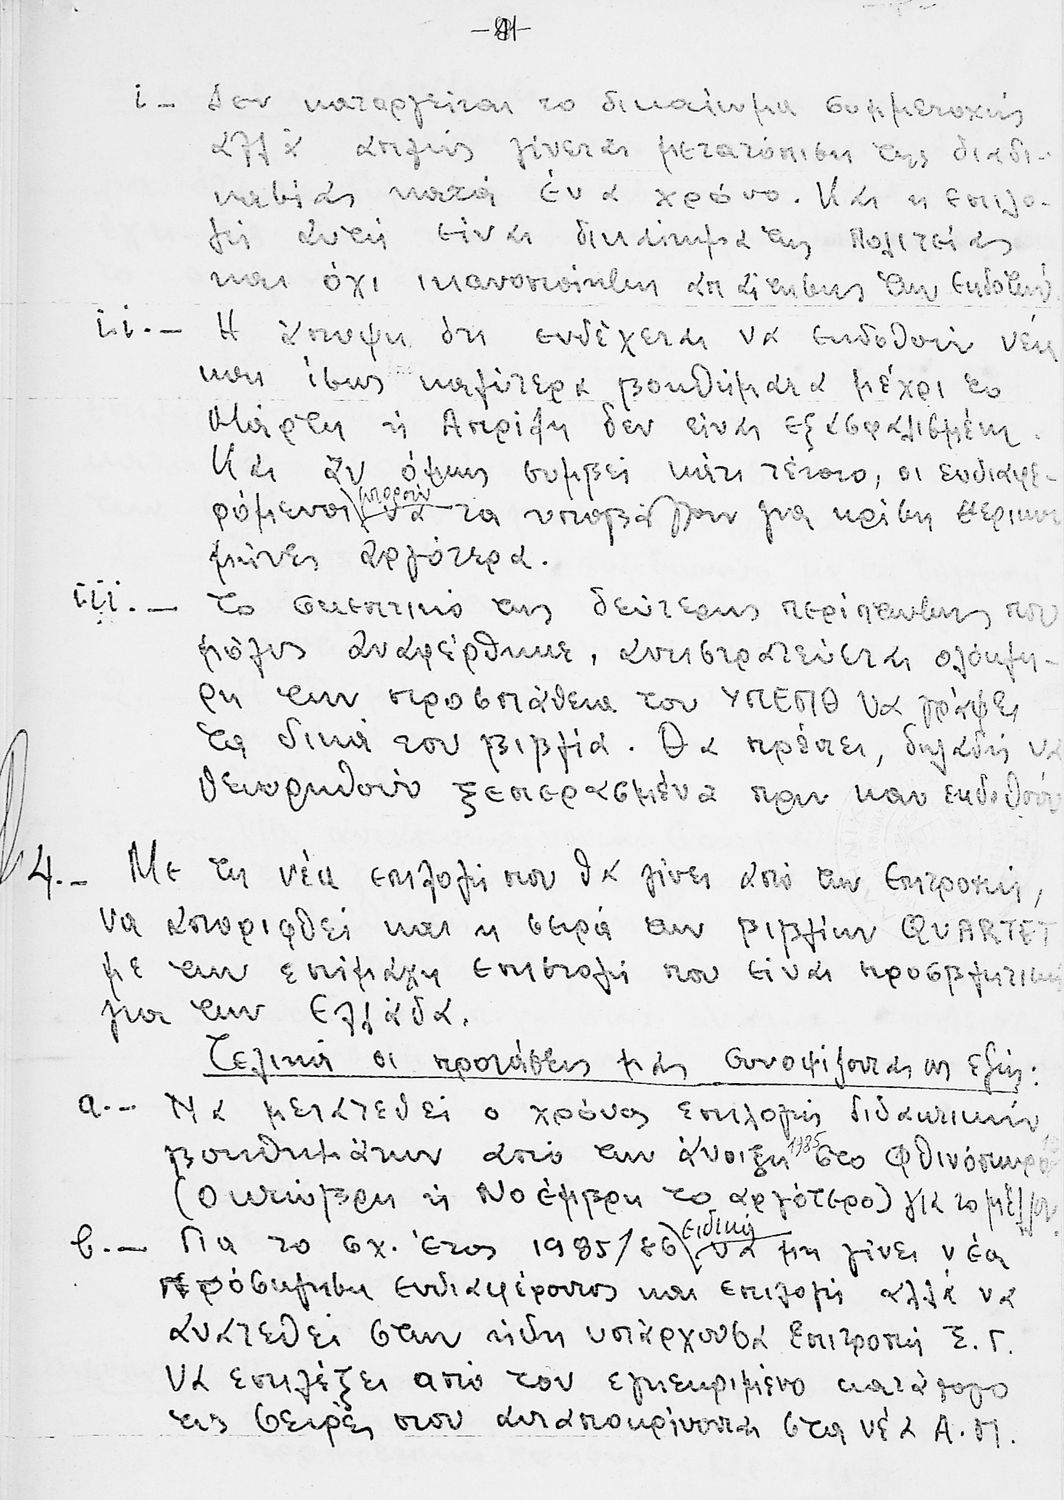 i_ Δεν καταργείται το δικαίωμα συμμετοχής
αλλά απλώς γίνεται μετατόπιση της διαδι-
κασίας κατά ένα χρόνο. Και η επιλο-
γή αυτή είναι δικαίωμα της Πολιτείας
και όχι ικανοποίηση απαίτησης των Εκδοτών
ii._ Η άποψη ότι ενδέχεται να εκδοθούν νέα
και ίσως καλύτερα βοηθήματα μέχρι το
Μάρτη ή Απρίλη δεν είναι εξασφαλισμένη.
Και αν όμως συμβεί κάτι τέτοιο, οι ενδιαφε-
ρόμενοι μπορούν να τα υποβάλλουν για κρίση μερικούς
μήνες αργότερα.
iii._ Το σκεπτικό της δεύτερης περίπτωσης που
μόλις αναφέρθηκε, αντιστρατεύεται ολόκλη-
ρη την προσπάθεια του ΥΠΕΠΘ να γράψει
τα δικά του βιβλία. Θα πρέπει, δηλαδή να
θεωρηθούν ξεπερασμένα πριν καν εκδοθούν
4._ Με τη νέα επιλογή που θα γίνει από την Επιτροπή,
να απορριφθεί και η σειρά των βιβλίων QUARTET
με την επίμαχη επιστολή που είναι προσβλητική
για την Ελλάδα.
Τελικά οι προτάσεις μας συνοψίζονται ως εξής:
α._ Να μετατεθεί ο χρόνος επιλογής διδακτικών
βοηθημάτων από την άνοιξη 1985 στο φθινόπωρο
(Οκτώβρη ή Νοέμβρη το αργότερο) για το μέλλον.
β._ Για το σχ. έτος 1985/86 ειδικά να μη γίνει νέα
πρόσκληση ενδιαφέροντος και επιλογή αλλά να
ανατεθεί στην ήδη υπάρχουσα Επιτροπή Ξ.Γ.
να επιλέξει από τον εγκεκριμένο κατάλογο
τις σειρές που ανταποκρίνονται στα νέα Α.Π.